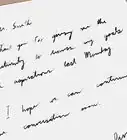 Mr. Smith
Thank you for giving me the
to discuss my goals
and aspirations last Monday
I hope we can continue
conversation soon.